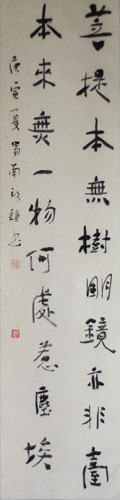 菩提本無樹明鏡亦非臺
本來無一物何處惹塵埃
庚寅夏蜀南